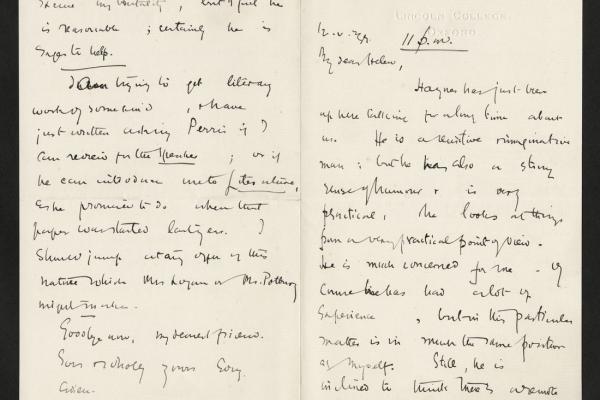 is reasonable; certainly he is
eager to help.
I am trying to get literary
work of some kind, & have
just written asking Perris if I
can review for the Speaker; or if
he can introduce me to Literature,
as he promised to do when that
paper was started last year. I
should jump at any offer of this
nature which Mrs Logan or Mr. Pottinger
might make.
Goodbye now, my dearest friend.
Yours wholly yours
LINCOLN COLLEGE,
OXFORD.
11 p.m.
My dear Helen,
Haynes has just been
up here talking for a long time about
us. He is a sensitive imaginative
man; but he has also a strong
sense of humour & is very
practical, he looks at things
from a very practical point of view.
He is much concerned for me - of
course he has had a lot of
experience, but in this particular
matter is in much the same position
as myself. Still, he is
inclined to think there's a remote